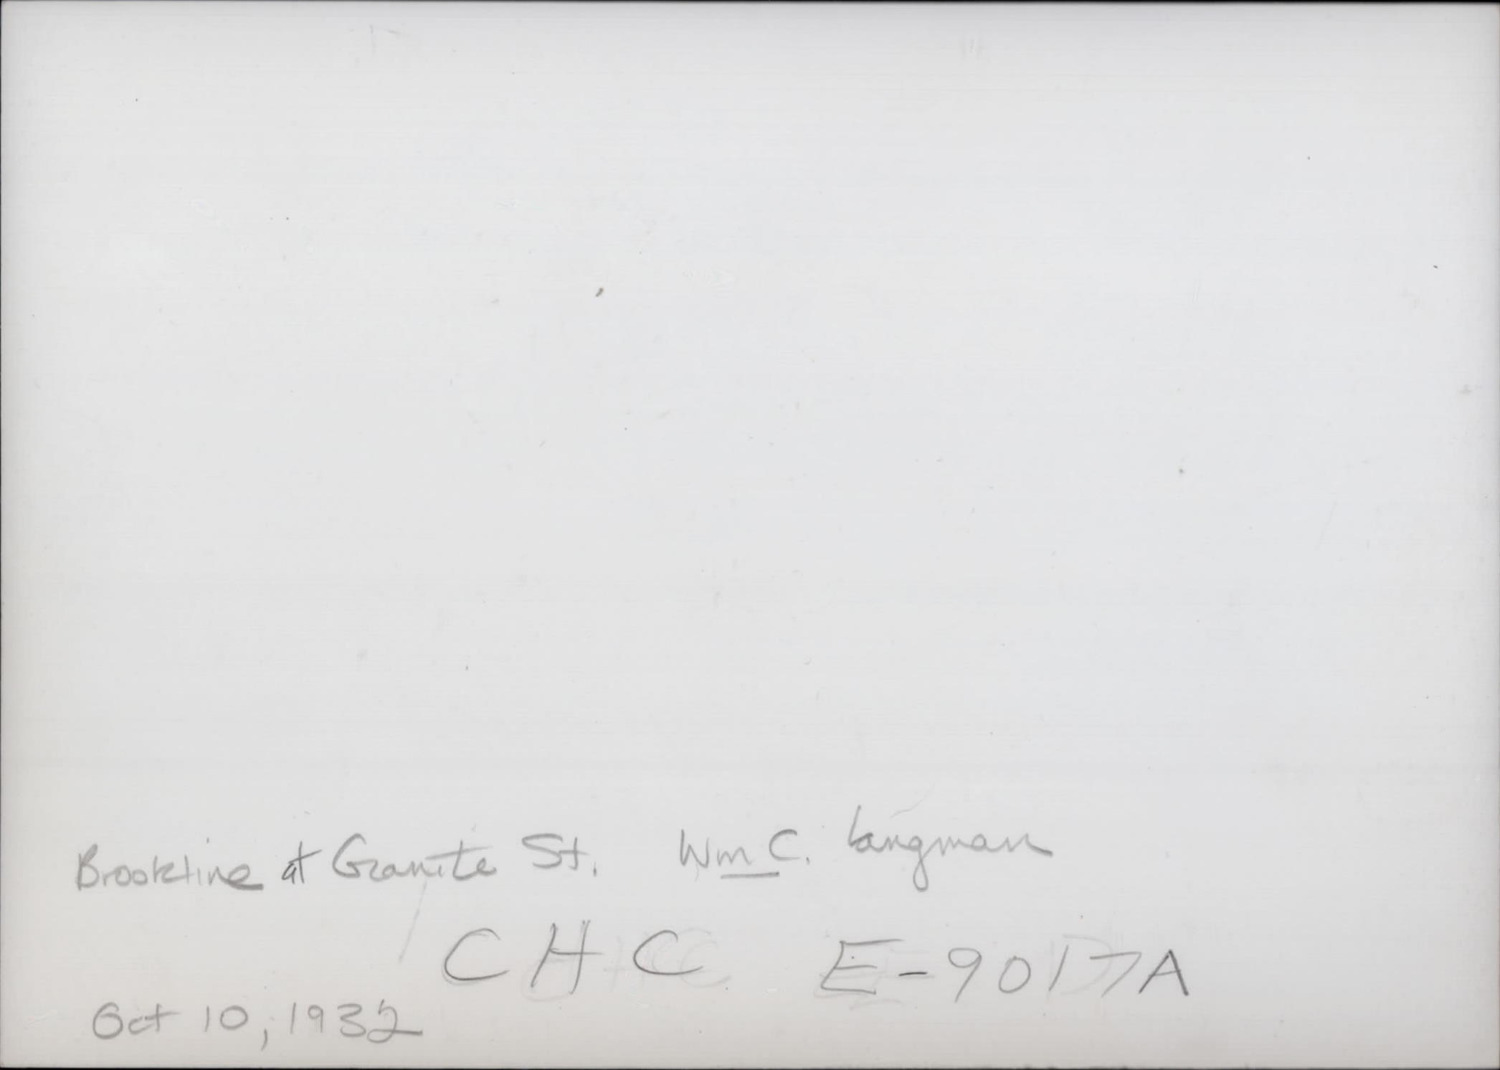 Brookline at Granite St. Wm C. Langman
CHC E-9017A
Oct 10, 1932